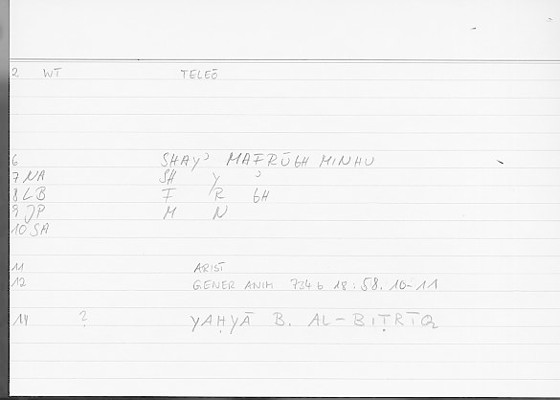 2 WT TELEŌ
6 SHAYʾ MAFRŪGH MINHU
7 NA SH Y ʾ
8 LB F R GH
9 JP M N
10 SA
11 ARIST
12 GENER ANIM 734 b 18 : 58. 10-11
14 ? YAḤYĀ B. AL-BIṬRĪQ